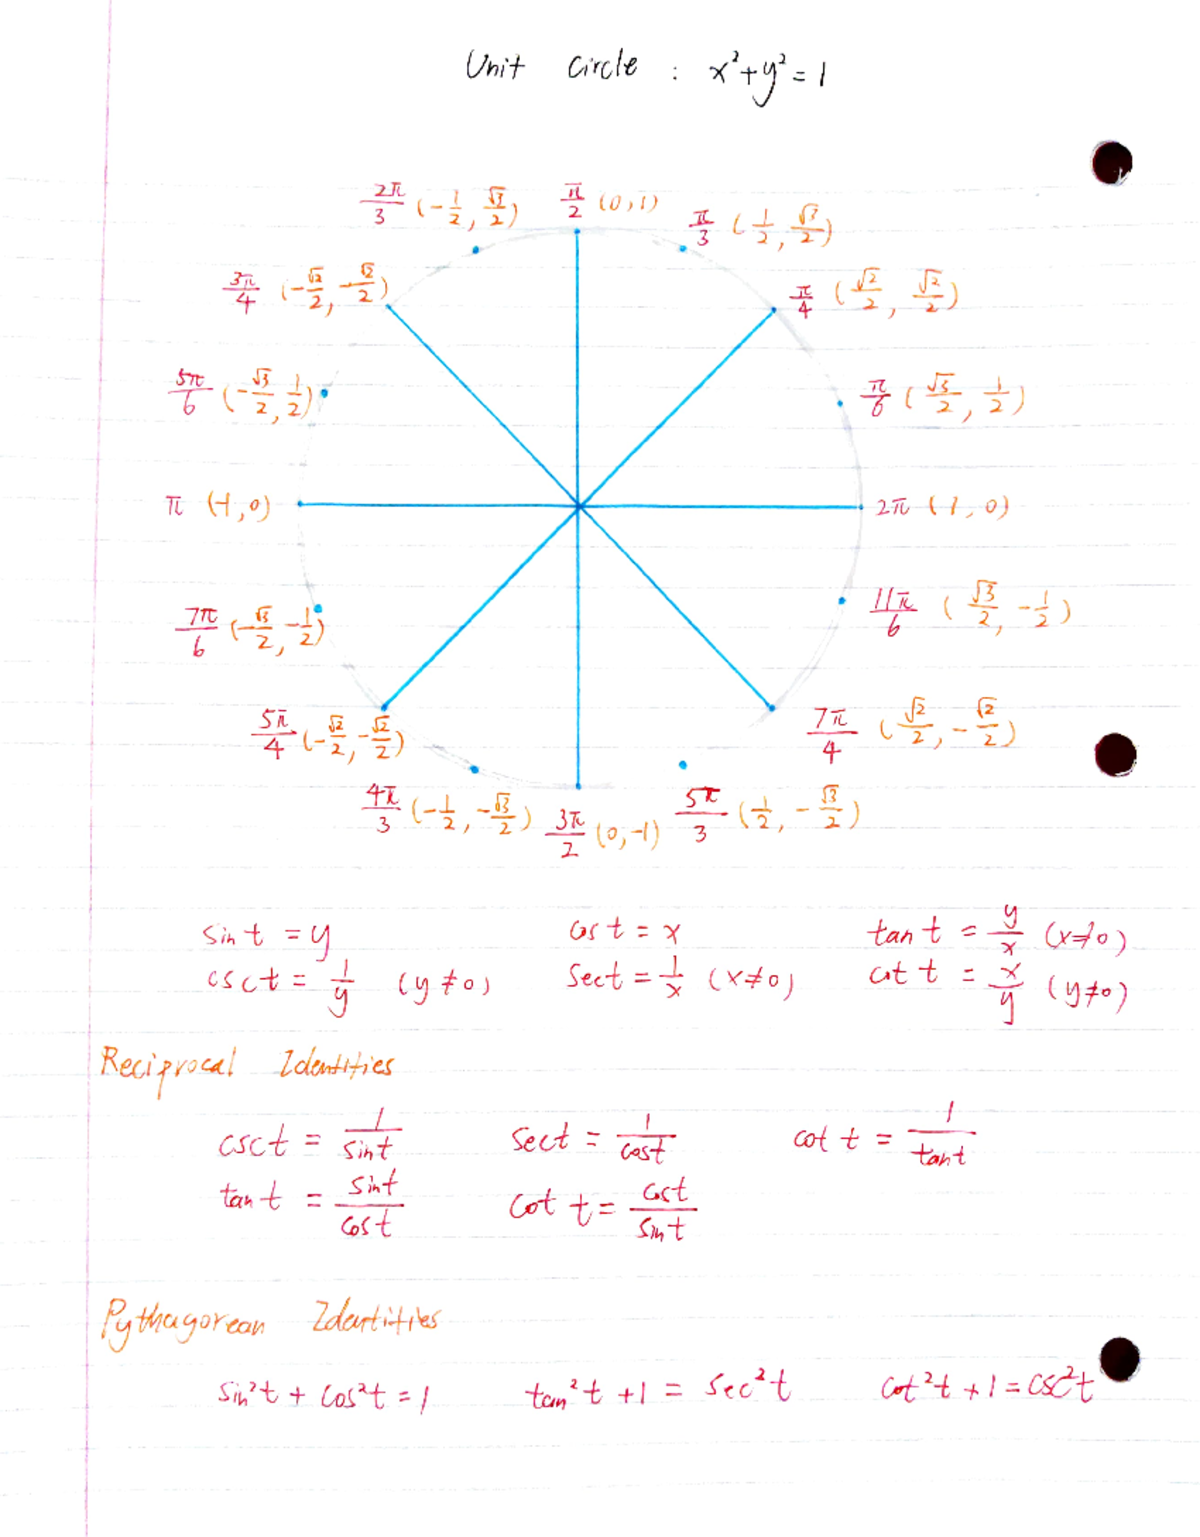 Unit Circle : x²+y²=1
2π/3 (-1/2, √3/2) π/2 (0,1) π/3 (1/2, √3/2)
3π/4 (-√2/2, -√2/2) π/4 (√2/2, √2/2)
5π/6 (-√3/2, 1/2) π/6 (√3/2, 1/2)
π (-1,0) 2π (1,0)
7π/6 (-√3/2, -1/2) 11π/6 (√3/2, -1/2)
5π/4 (-√2/2, -√2/2) 7π/4 (√2/2, -√2/2)
4π/3 (-1/2, -√3/2) 3π/2 (0,-1) 5π/3 (1/2, -√3/2)
sin t = y cos t = x tan t = y/x (x≠0)
csc t = 1/y (y≠0) sec t = 1/x (x≠0) cot t = x/y (y≠0)
Reciprocal Identities
csc t = 1/sin t sec t = 1/cos t cot t = 1/tan t
tan t = sin t/cos t cot t = cos t/sin t
Pythagorean Identities
sin²t + cos²t = 1 tan²t + 1 = sec²t cot²t + 1 = csc²t